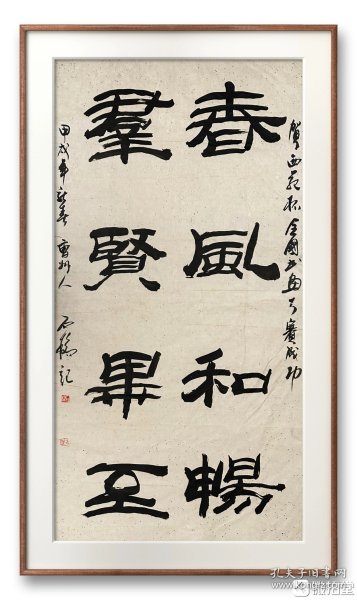 賀西苑杯全國書畫大賽成功
春風和暢
羣賢畢至
甲戌年新春曹州人石橋記
孔夫子旧书网